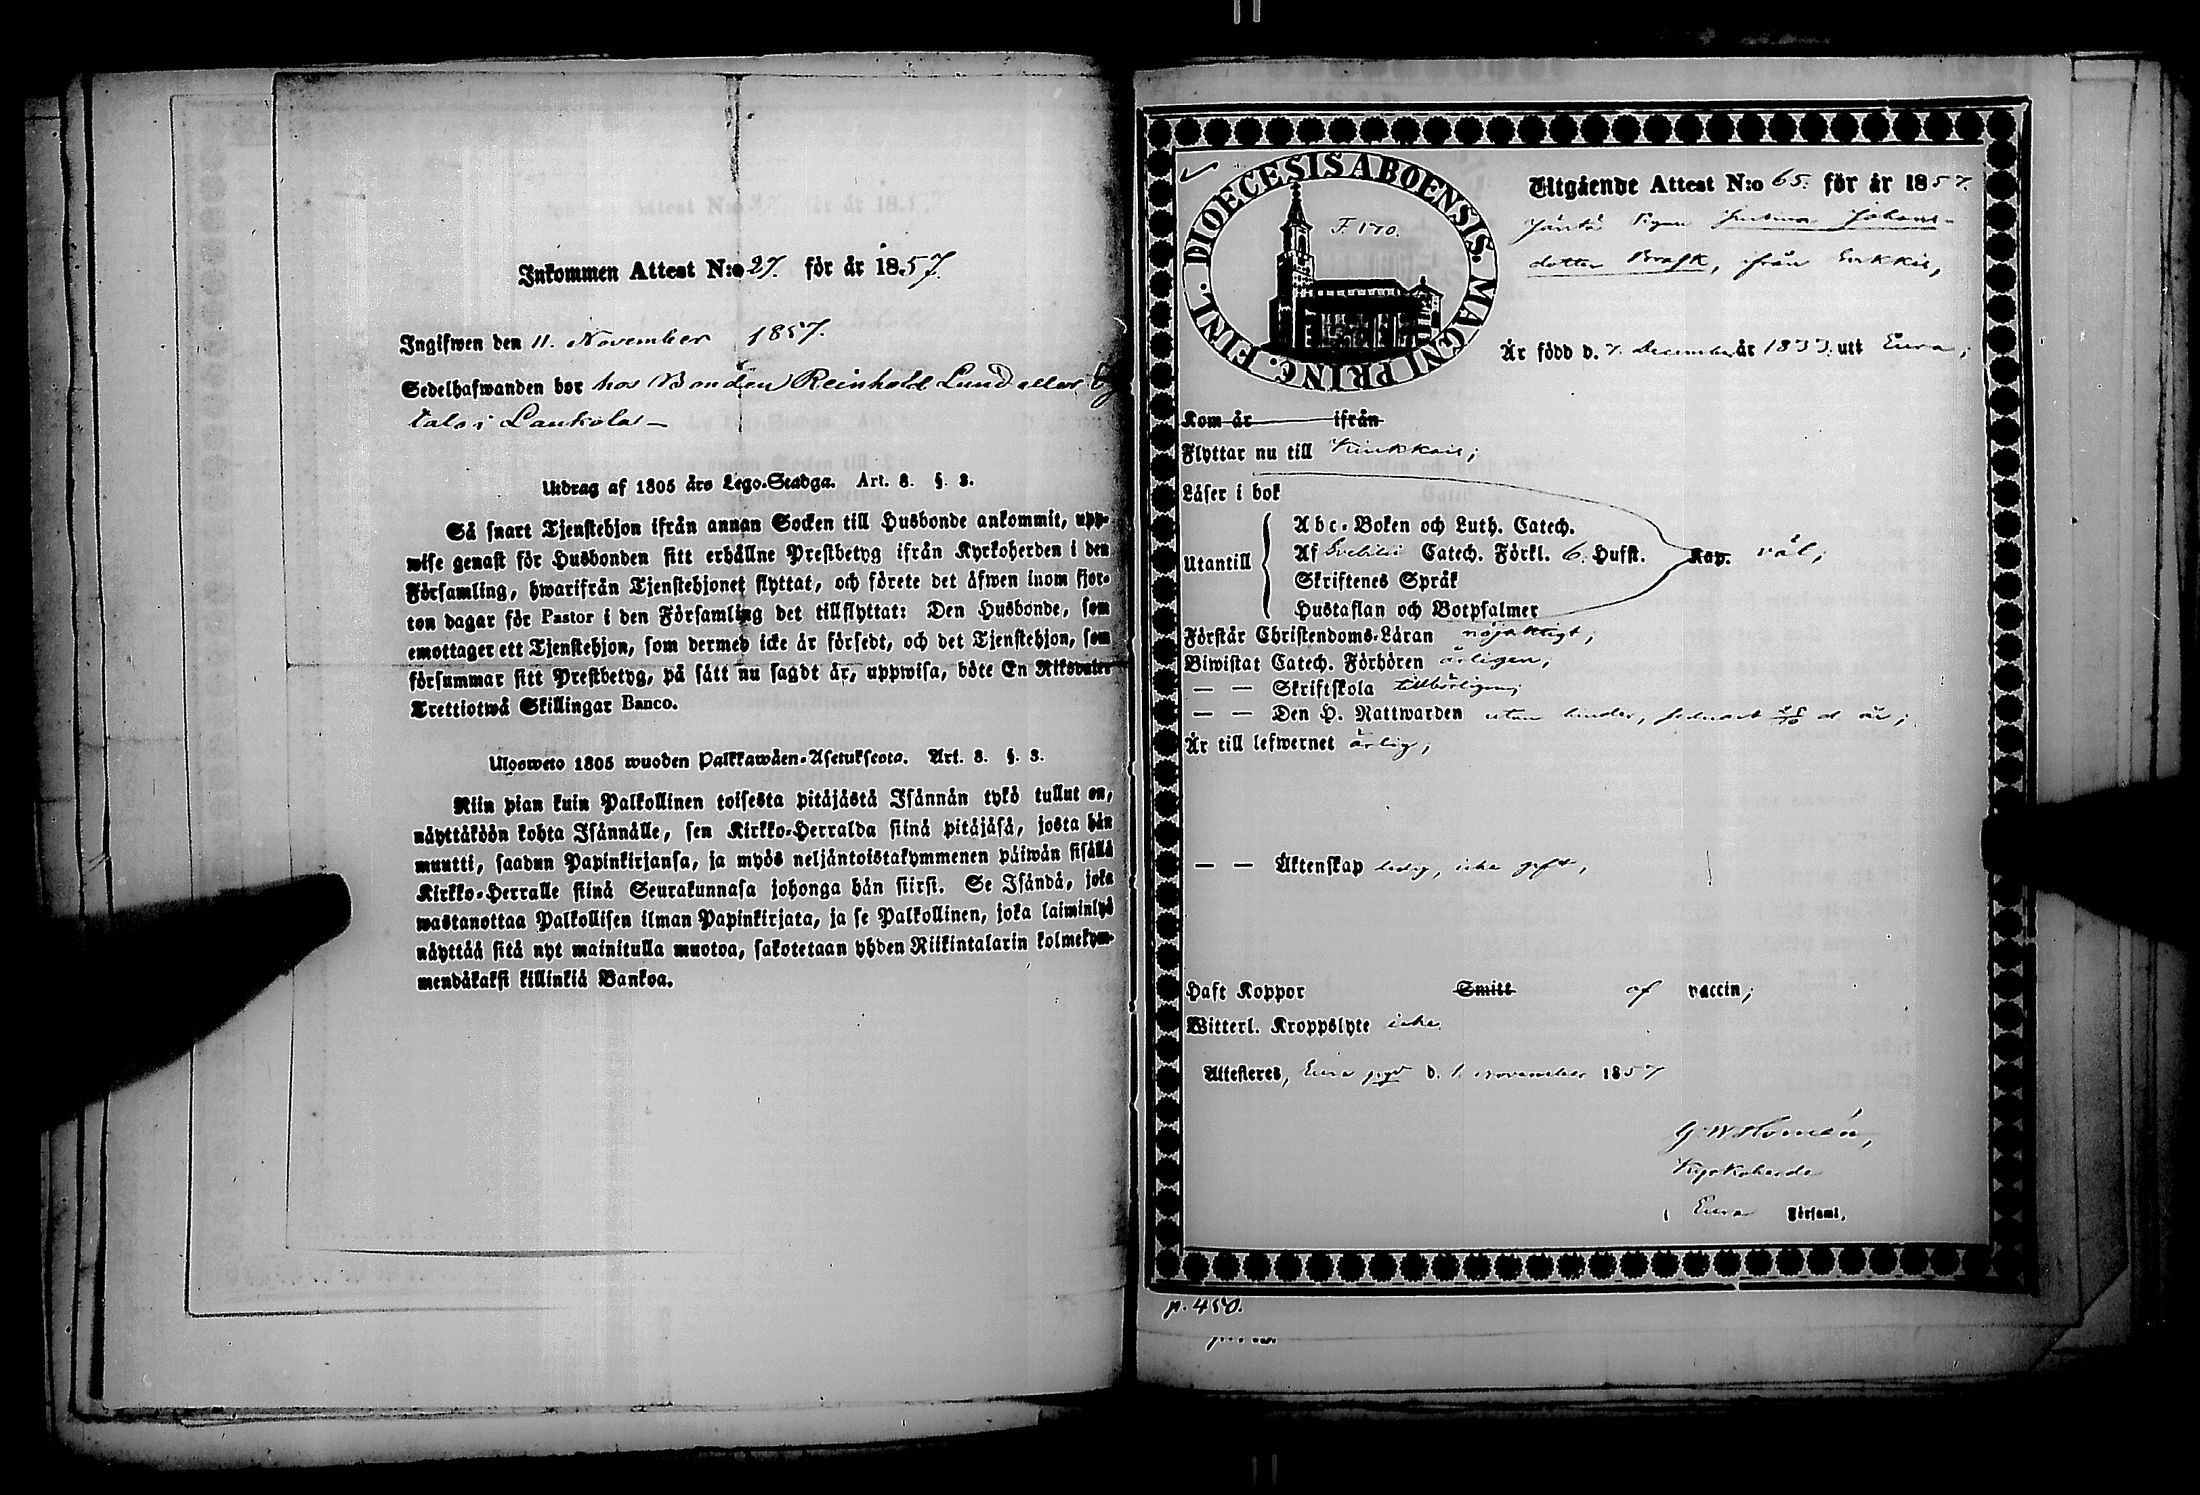 Inkommen Attest N:o 27. för år 1857.
Ingifwen den 11. November 1857.
Sedelhafwanden bor hos Bonden Reinhold Lund eller
talo i Laukola –
Utdrag af 1805 års Lego-Stadga. Art. 8. §. 3.
Så snart Tjenstehjon ifrån annan Socken till Husbonde ankommit, upp-
wise genast för Husbonden sitt erhållne Prestbetyg ifrån Kyrkoherden i den
Församling, hwarifrån Tjenstehjonet flyttat, och förete det åfwen inom fjor-
ton dagar för Pastor i den Församling det tillflyttat: Den Husbonde, som
emottager ett Tjenstehjon, som dermed icke är försedt, och det Tjenstehjon, som
försummar sitt Prestbetyg, på sätt nu sagdt är, uppwisa, böte En Riksdaler
Trettiotwå Skillingar Banco.
Ulosweto 1805 wuoden Palkkawäen-Asetuksesta. Art. 8. §. 3.
Niin pian kuin Palkollinen toisesta pitäjästä Isännän tykö tullut on,
näyttäköön kohta Isännälle, sen Kirkko-Herralda siinä pitäjäsä, josta hän
muutti, saadun Papinkirjansa, ja myös neljäntoistakymmenen päiwän sisällä
Kirkko-Herralle siinä Seurakunnasa johonga hän siirsi. Se Isändä, joka
wastanottaa Palkollisen ilman Papinkirjata, ja se Palkollinen, joka laiminlyö
näyttää sitä nyt mainitulla muotoa, sakotetaan yhden Riikintalarin kolmekym-
mendäkaksi killinkiä Bankoa.
DIOECESIS ABOENSIS. MAGNI PRINC. FINL.
F. 170.
Utgående Attest N:o 65. för år 1857.
Pigan Justina Johans-
dotter Brask, ifrån
Är född d. 7. December år 1833. utt Eura;
Kom år ifrån
Flyttar nu till
Läser i bok
Abc-Boken och Luth. Catech.
Utantill Af Svebilii Catech. Förkl. 6. Hufst. Kap. väl;
Skriftenes Språk
Hustaflan och Botpsalmer
Förstår Christendoms-Läran nöjaktigt;
Biwistat Catech. Förhören årligen;
— — Skriftskola tillbörligen;
— — Den H. Nattwarden utan hinder, sednast d. år;
Är till lefwernet ärlig;
— — Äktenskap ledig, icke gift,
Haft Koppor Smitt af vaccin;
Witterl. Kroppslyte icke.
Attesteras, Eura prgd d. 1. November 1857
G W Homén,
Kyrkoherde
i Eura Församl.
p. 450.